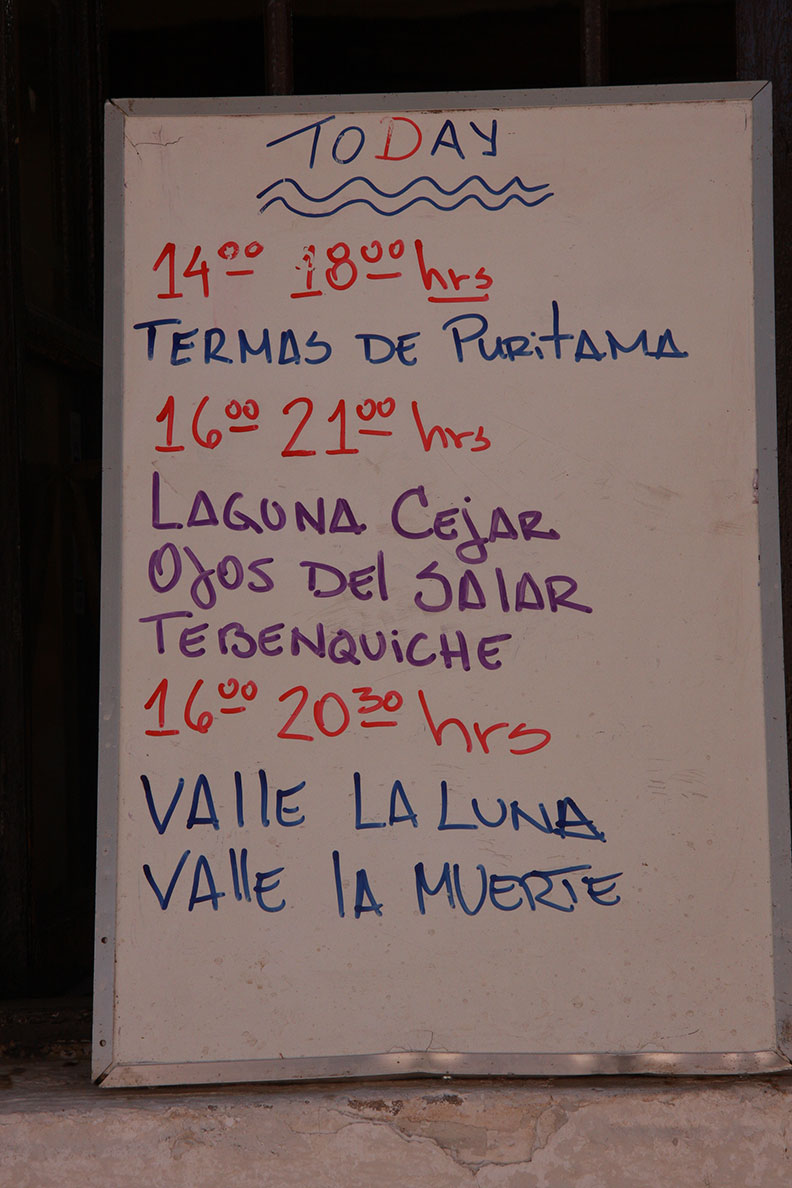 TODAY
14⁰⁰ 18⁰⁰ hrs
TERMAS DE PURITAMA
16⁰⁰ 21⁰⁰ hrs
LAGUNA CEJAR
OJOS DEL SALAR
TEBENQUICHE
16⁰⁰ 20³⁰ hrs
VALLE LA LUNA
VALLE LA MUERTE